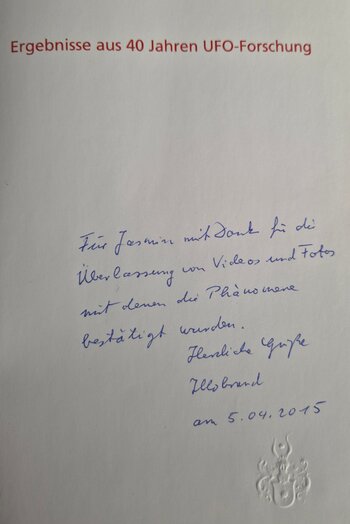 Ergebnisse aus 40 Jahren UFO-Forschung
Für Jasmin mit Dank für die
Überlassung von Videos und Fotos
mit denen die Phänomene
bestätigt wurden.
Herzliche Grüße
Illobrand
am 5.04.2015